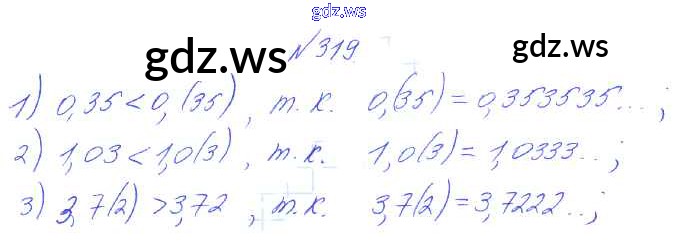 gdz.ws
gdz.ws №319 gdz.ws
1) 0,35 < 0,(35), т.к. 0,(35) = 0,353535...;
2) 1,03 < 1,0(3), т.к. 1,0(3) = 1,0333...;
3) 3,7(2) > 3,72, т.к. 3,7(2) = 3,7222...;